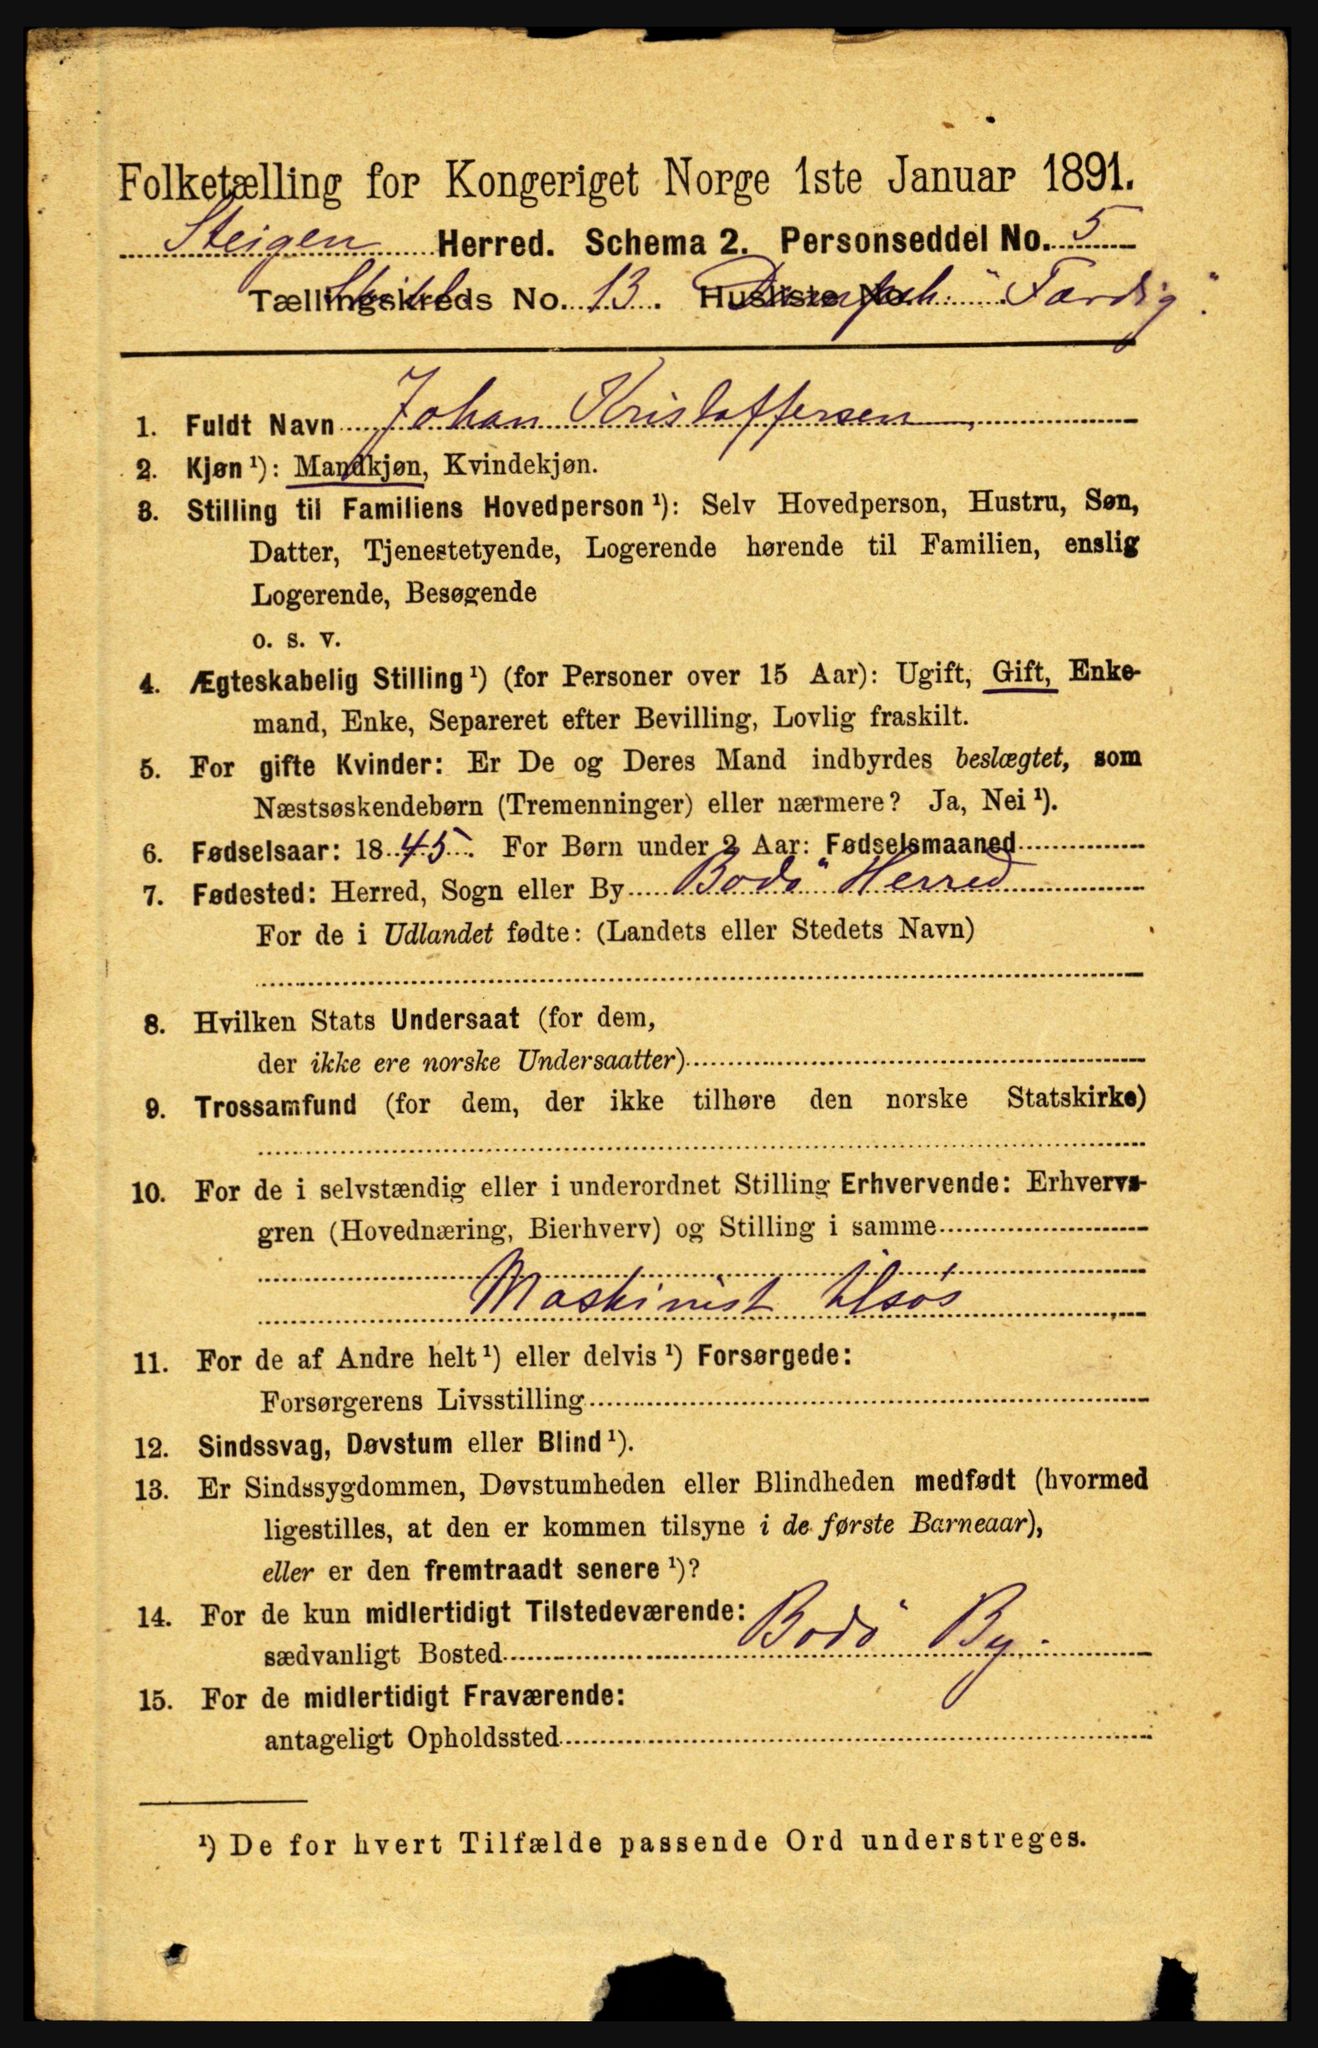 Folketælling for Kongeriget Norge 1ste Januar 1891.
Steigen Herred. Schema 2. Personseddel No. 5
Tællingskreds No. 13. Husliste No. "Færdig".
1. Fuldt Navn Johan Kristoffersen
2. Kjøn ¹): Mandkjøn, Kvindekjøn.
3. Stilling til Familiens Hovedperson ¹): Selv Hovedperson, Hustru, Søn,
Datter, Tjenestetyende, Logerende hørende til Familien, enslig
Logerende, Besøgende
o. s. v.
4. Ægteskabelig Stilling ¹) (for Personer over 15 Aar): Ugift, Gift, Enke-
mand, Enke, Separeret efter Bevilling, Lovlig fraskilt.
5. For gifte Kvinder: Er De og Deres Mand indbyrdes beslægtet, som
Næstsøskendebørn (Tremenninger) eller nærmere? Ja, Nei ¹).
6. Fødselsaar: 1845. For Børn under 2 Aar: Fødselsmaaned
7. Fødested: Herred, Sogn eller By Bodö Herred
For de i Udlandet fødte: (Landets eller Stedets Navn)
8. Hvilken Stats Undersaat (for dem,
der ikke ere norske Undersaatter)
9. Trossamfund (for dem, der ikke tilhøre den norske Statskirke)
10. For de i selvstændig eller i underordnet Stilling Erhvervende: Erhvervs-
gren (Hovednæring, Bierhverv) og Stilling i samme
Maskinist tilsøs
11. For de af Andre helt ¹) eller delvis ¹) Forsørgede:
Forsørgerens Livsstilling
12. Sindssvag, Døvstum eller Blind ¹).
13. Er Sindssygdommen, Døvstumheden eller Blindheden medfødt (hvormed
ligestilles, at den er kommen tilsyne i de første Barneaar),
eller er den fremtraadt senere ¹)?
14. For de kun midlertidigt Tilstedeværende:
sædvanligt Bosted Bodö By.
15. For de midlertidigt Fraværende:
antageligt Opholdssted
¹) De for hvert Tilfælde passende Ord understreges.